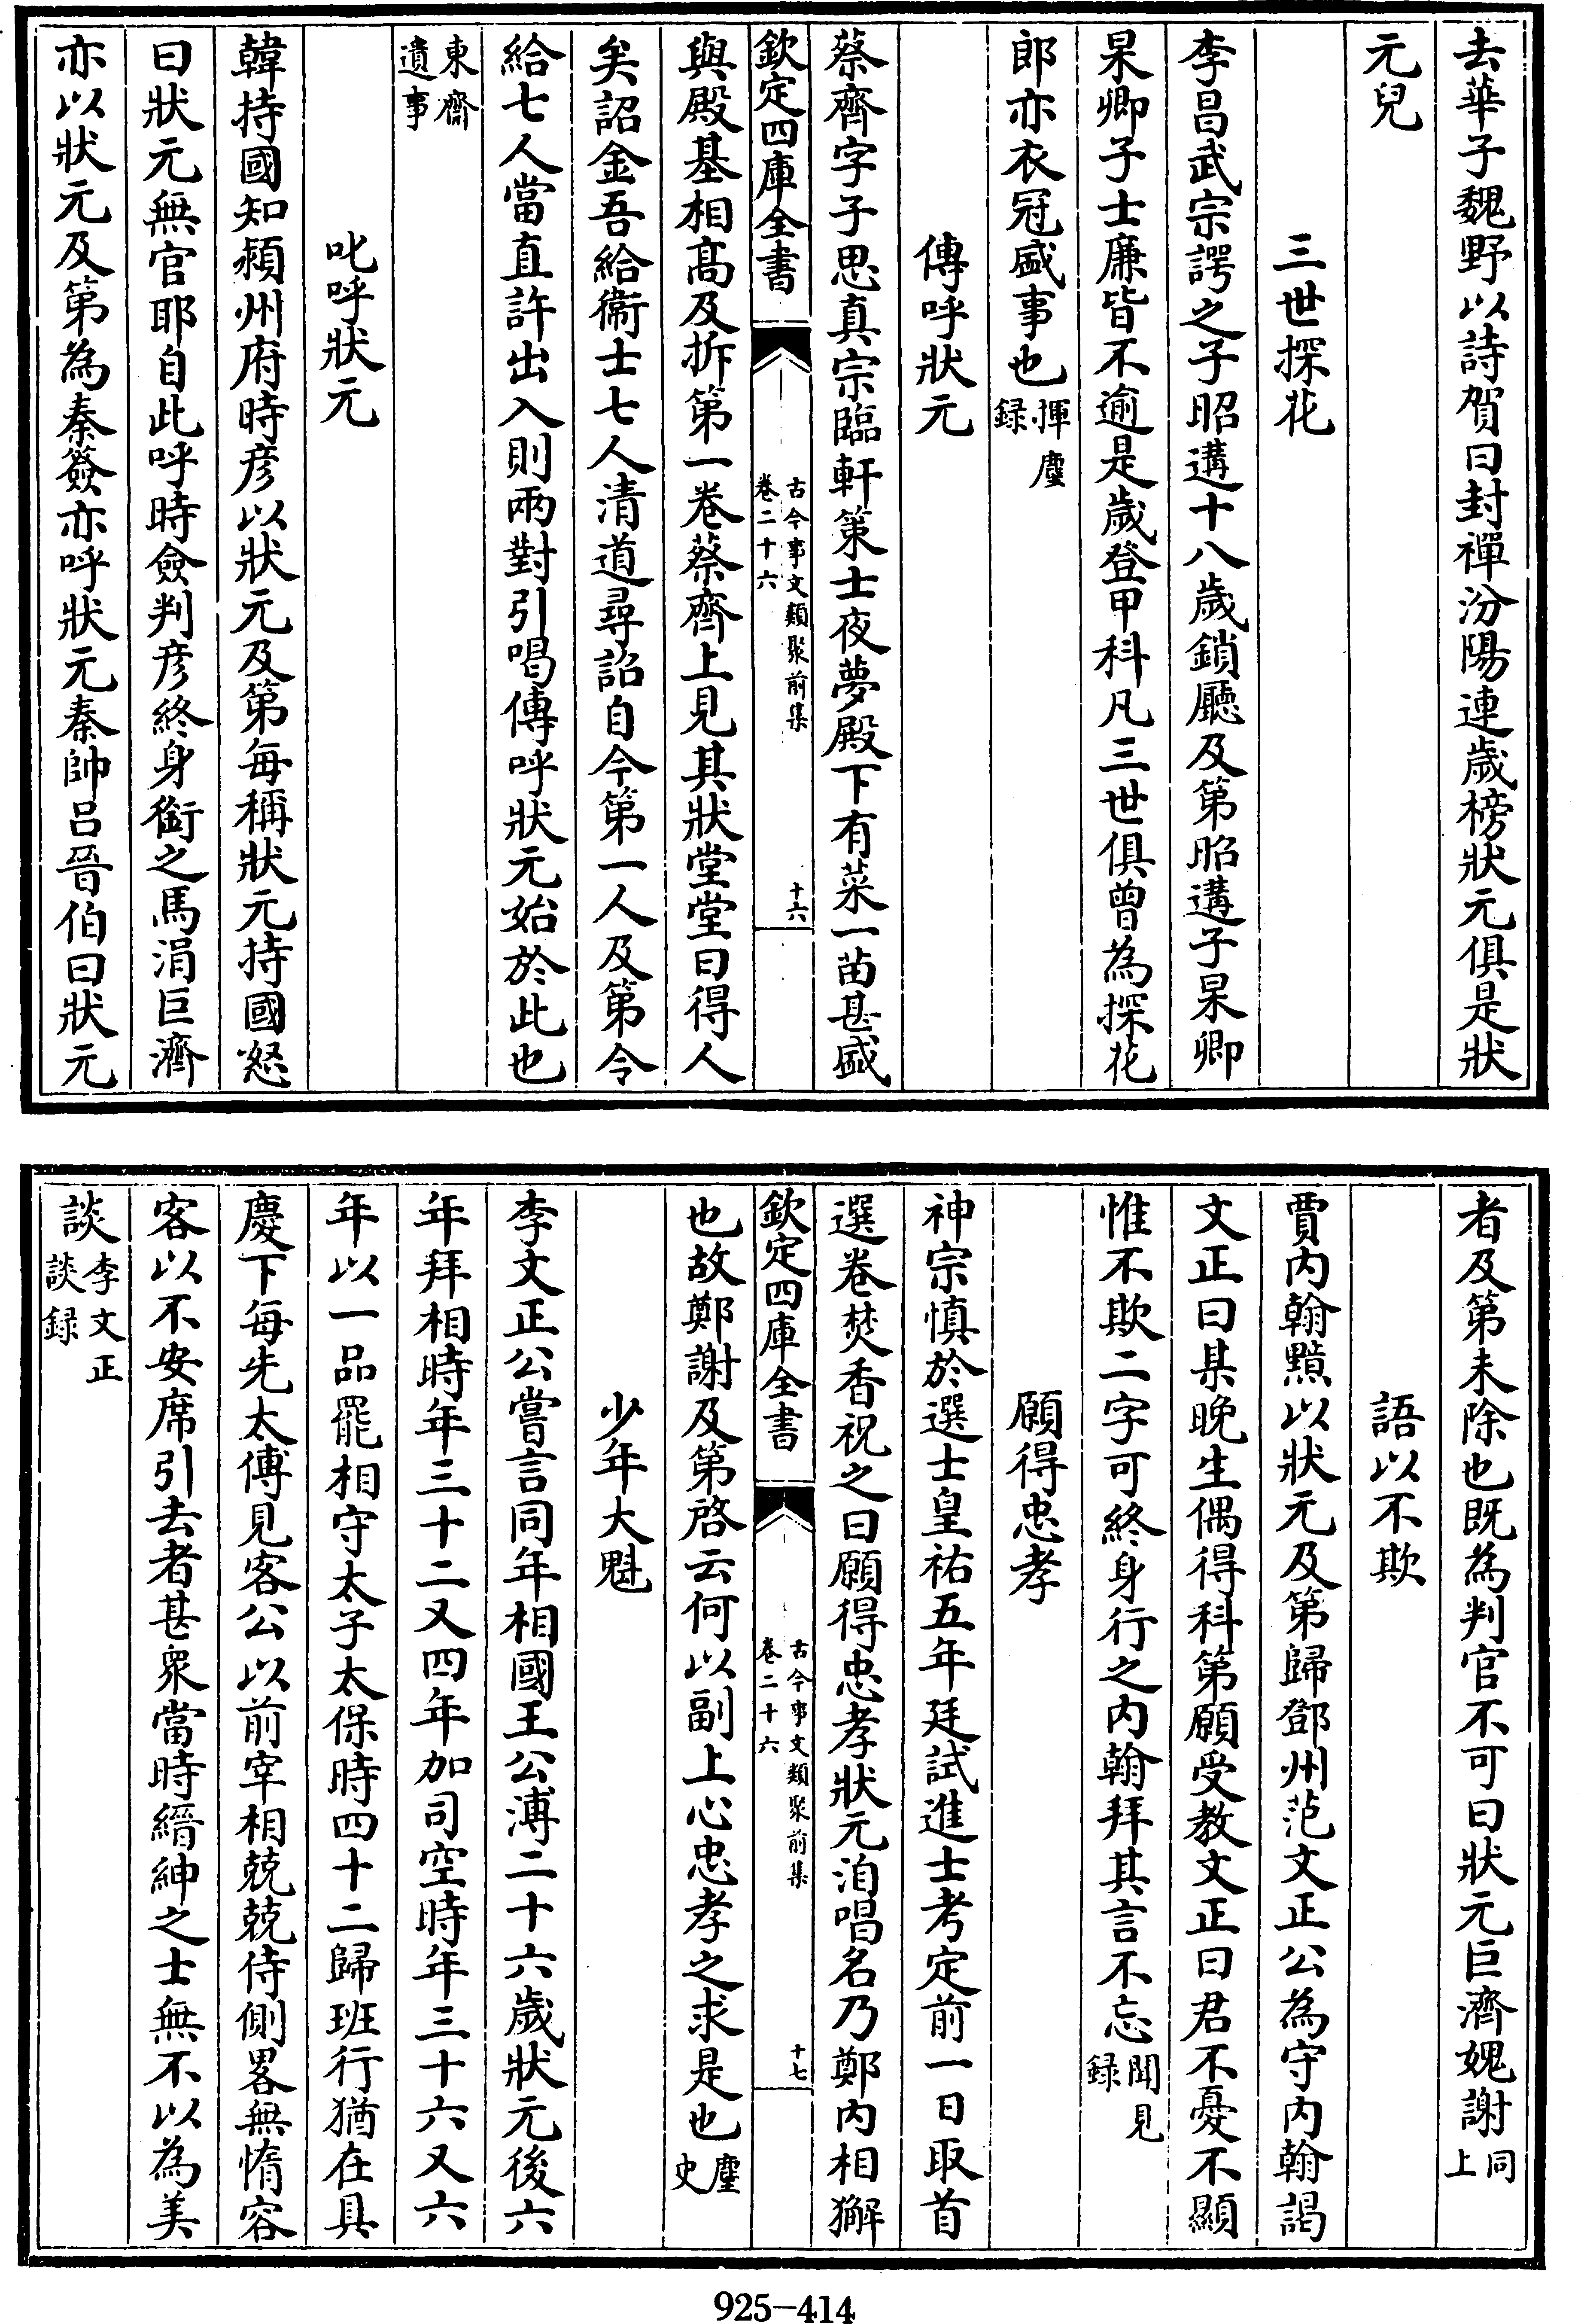 去華子魏野以詩賀曰封禪汾陽連歲榜狀元俱是狀
元兒
三世探花
李昌武宗諤之子昭遘十八歲鎖廳及第昭遘子杲卿
杲卿子士廉皆不逾是歲登甲科凡三世俱曾為探花
郎亦衣冠盛事也揮麈録
傳呼狀元
蔡齊字子思真宗臨軒策士夜夢殿下有菜一苗甚盛
欽定四庫全書 古今事文類聚前集 卷二十六 十六
與殿基相高及拆第一卷蔡齊上見其狀堂堂曰得人
矣詔金吾給衞士七人清道尋詔自今第一人及第令
給七人當直許出入則兩對引喝傳呼狀元始於此也
東齋遺事
叱呼狀元
韓持國知潁州府時彦以狀元及第每稱狀元持國怒
曰狀元無官耶自此呼時僉判彦終身銜之馬涓巨濟
亦以狀元及第為秦簽亦呼狀元秦帥呂晉伯曰狀元
者及第未除也既為判官不可曰狀元巨濟媿謝同上
語以不欺
賈內翰黯以狀元及第歸鄧州范文正公為守内翰謁
文正曰某晚生偶得科第願受教文正曰君不憂不顯
惟不欺二字可終身行之内翰拜其言不忘聞見録
願得忠孝
神宗慎於選士皇祐五年廷試進士考定前一日取首
選卷焚香祝之曰願得忠孝狀元洎唱名乃鄭内相獬
欽定四庫全書 古今事文類聚前集 卷二十六 十七
也故鄭謝及第啓云何以副上心忠孝之求是也麈史
少年大魁
李文正公嘗言同年相國王公溥二十六歲狀元後六
年拜相時年三十二又四年加司空時年三十六又六
年以一品罷相守太子太保時四十二歸班行猶在具
慶下每先太傅見客公以前宰相兢兢侍側畧無惰容
客以不安席引去者甚衆當時縉紳之士無不以為美
談李文正談録
925-414